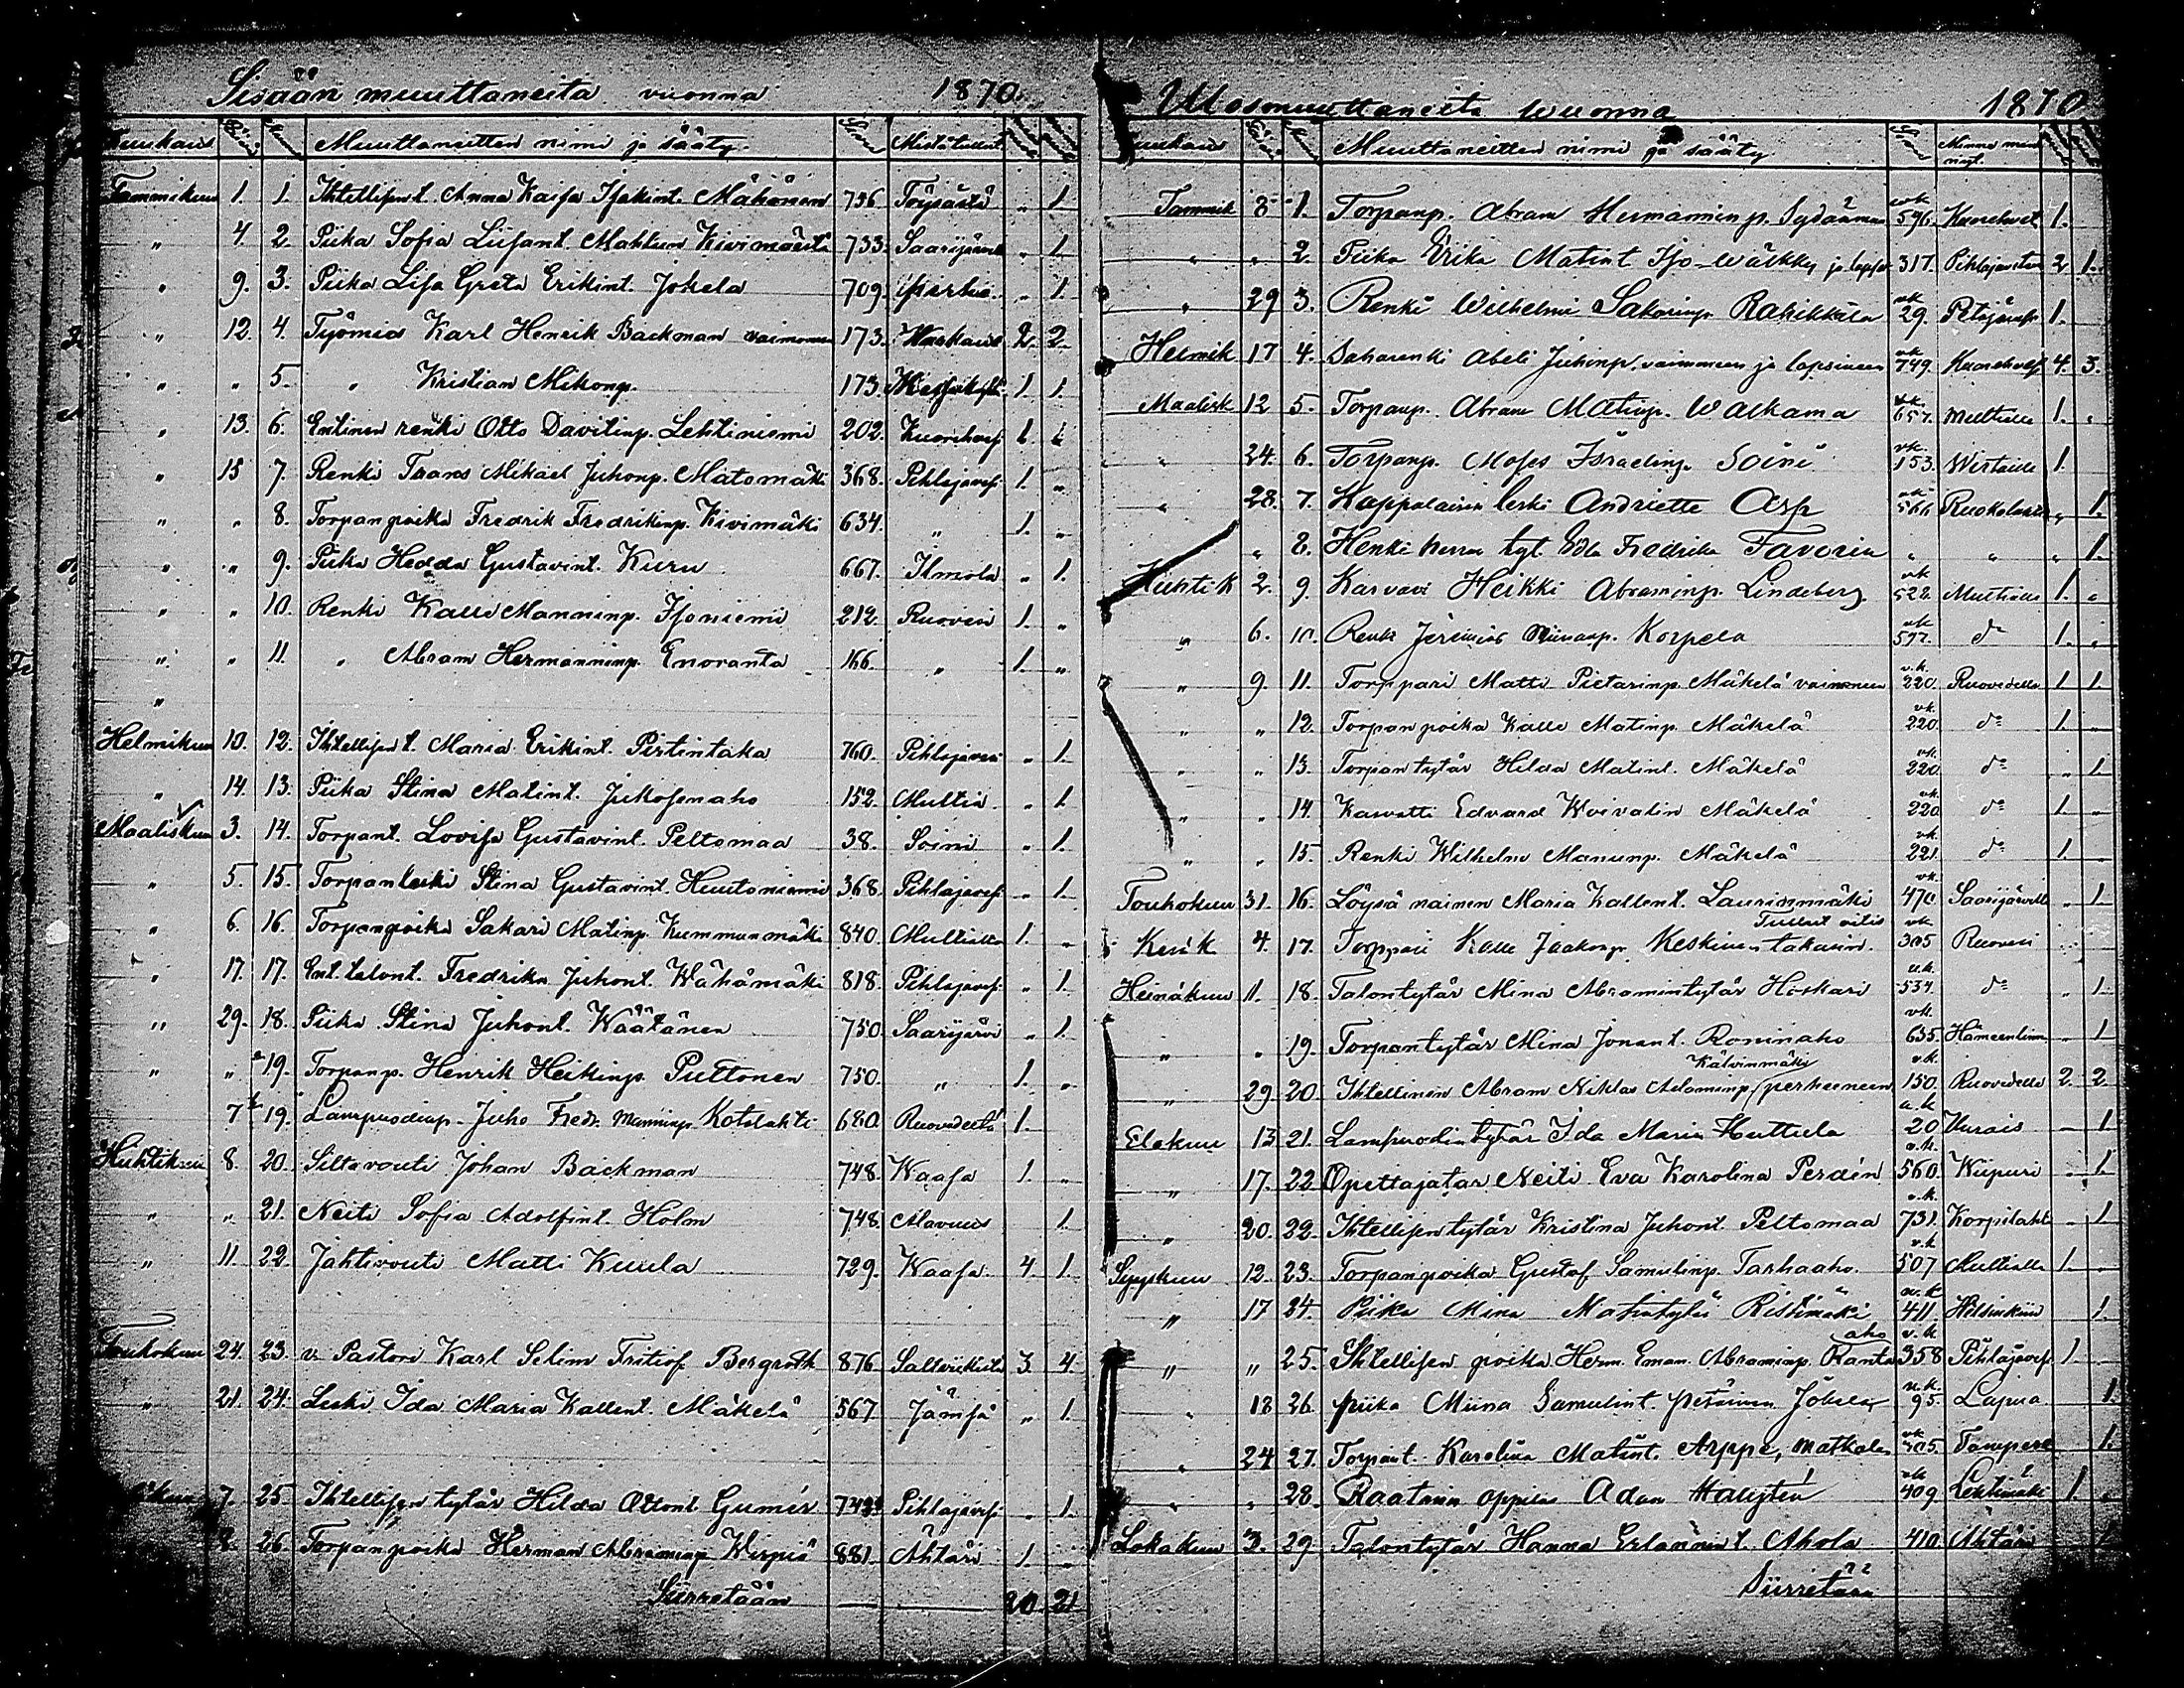 Sisään muuttaneita vuonna 1870.
Kuukausi Muuttaneitten nimi ja sääty. Mistä tulleet
Tammikuu 1. 1. Ihtellisent. Anna Kaisa Isakint. Mähönen 736 Töysästä „ 1.
„ 4. 2. Piika Sofia Liisant. Mahlun Kivimäestä 733. Saarijärvi „ 1.
„ 9. 3. Piika Lisa Greta Erikint. Jokela 709. „ 1.
„ 12. 4. Työmies Karl Henrik Backman vaimoneen 173. 2. 2.
„ „ 5. „ Kristian Mikonp. 173. 1. 1.
„ 13. 6. Entinen renki Otto Davitinp. Lehtiniemi 202. Kuorehvesi
„ 15 7. Renki Frans Mikael Juhonp. Matomäki 368. Pihlajavesi 1. „
„ „ 8. Torpanpoika Fredrik Fredrikinp. Kivimäki 634. „ 1. „
„ „ 9. Piika Hedda Gustavint. Kuru 667. Ilmola „ 1.
„ „ 10. Renki Kalle Manninp. Isoniemi 212. Ruovesi 1. „
„ „ 11. „ Abram Hermanninp. Enoranta 166. „ 1. „
„
Helmikuu 10. 12. Ihtellisent. Maria Erikint. Pirtintaka 760. Pihlajavesi „ 1.
„ 14. 13. Piika Stina Matint. Jukosenaho 152. Multia „ 1.
Maaliskuu 3. 14. Torpant. Lovisa Gustavint. Peltomaa 38. Soini „ 1.
„ 5. 15. Torpanleski Stina Gustavint. Huutoniemi 368. Pihlajavesi „ 1.
„ 6. 16. Torpanpoika Sakari Matinp. Kummunmäki 840. Multialta 1. „
„ 17. 17. Ent. talont. Fredrika Juhont. Wähämäki 818. Pihlajavesi „ 1.
„ 29. 18. Piika Stina Juhont. Väätänen 750. Saarijärvi „ 1.
„ „ 19. Torpanp. Henrik Heikinp. Puttonen 750. „ 1. „
7 19. Lampuodinp. Juho Fredr. Manninp. Kotolahti 680. Ruovedeltä 1.
Huhtikuu 8. 20. Siltavouti Johan Backman 748. Waasa 1. „
„ „ 21. Neiti Sofia Adolfint. Holm 748. Alavuus 1.
„ 11. 22. Jahtivouti Matti Kuula 729. Waasa. 4. 1.
Toukokuu 24. 23. v. Pastori Karl Selim Fritiof Bergroth 876 Saltvikista 3. 4.
„ 21. 24. Leski Ida Maria Kallent. Mäkelä 567 Jämsä „ 1.
7. 25 Ihtellisen tytär Hilda Ottont. Gumér Pihlajavesi „ 1.
8. 26 Torpanpoika Herman Abraminp. Wirpiö 881. Ähtäri 1. „
Siirretään 20 21
Ulosmuuttaneita Wuonna 1870
Kuukausi Muuttaneitten nimi ja sääty Minne muut.
Tammik 8 1. Torpanp. Abram Hermanninp. Sydänmaa 596 Kuorehvet 1.
„ „ 2. Piika Erika Matint Iso-Wälkky ja lapse 317. Pihlajavetee 2 1.
„ 29 3. Renki Wilhelmi Sakarinp. Rahikkala vk 29. Petäjäves 1.
Helmik 17 4. Saharenki Abeli Juhinp. vaimoneen ja lapsineen vk 749. Kuorehves. 4. 3.
Maalisk 12 5. Torpanp. Abram Matinp. Walkama vk. 657. Multialle 1. „
„ 24. 6. Torpanp. Moses Israelinp. Soini vk 153. Wirtaille 1.
„ 28. 7. Kappalaisen leski Andriette Asp vk 566 Ruokolahti „ 1.
„ 8. Henki herran tyt. Edla Fredrika Favorin „ „ „ 1.
Huhtik 2. 9. Karvari Heikki Abraminp. Lindeberg vk 522. Multialle 1. „
„ 6. 10. Renki Jeremias Korpela vk 597. do 1. „
„ 9. 11. Torppari Matti Pietarinp. Mäkelä vaimoneen v.k. 220. Ruovedelle 1. 1.
„ „ 12. Torpanpoika Kalle Matinp. Mäkelä vk. 220. do 1. „
„ „ 13. Torpantytär Hilda Matint. Mäkelä vk. 220. do „ 1.
„ „ 14. Kasvatti Edvard Mäkelä vk. 220 do 1. „
„ „ 15. Renki Wilhelm Manunp. Mäkelä vk. 221. do 1. „
Toukokuu 31. 16. Löysä nainen Maria Kallent. Laurinmäki vk. 470 Saarijärvelle „ 1.
Kesäk 4. 17. Torppari Kalle Jaakonp. Keskinen takaisin. Tullut vk 305 Ruovesi
Heinäkuu 11. 18. Talontytär Mina Abramintytär Hoskari v.k. 534. do „ 1.
„ „ 19. Torpantytär Mina Jonant. Roninaho vk. 635. Hämeenlinn „ 1
„ 29 20. Ihtellinen Abram Niklas Adaminp. Kälvinmäki perheeneen v.k. 150. Ruovedelle 2. 2
Elokuu 13 21. Lampuodin tytär Ida Maria Huttula v.k 20 Kurais — 1.
„ 17. 22 Opettajatar Neiti Eva Karolina Perdén v.k. 560. Wiipuri „ 1.
„ 20. 22. Ihtellisentytär Kristina Juhont. Peltomaa v.k. 731. Korpilaht „ 1.
Syyskuu 12. 23. Torpanpoika Gustaf Samulinp. Tarhaaho. v.k 507 Multialle 1. „
„ 17 24. Piika Mina Matintytär Ristimäki 411. Helsinkiin 1.
„ „ 25. Ihtellisen poika Herm. Eman. Abraminp. Rantaaho v.k 358 Pihlajavesi 1.
„ 18 26. piika Miina Samulint. Jokela v.k. 95. Lapua 1.
„ 24 27. Torpant. Karolina Matint. Arppe, vk 305. Tampere 1.
„ „ 28. Raatarin oppilas Adam vk 409 Lehtimäki 1. „
Lokakuu 3. 29. Talontytär Hanna Erlannint. Ahola 410. Ähtäri 1.
Siirretään